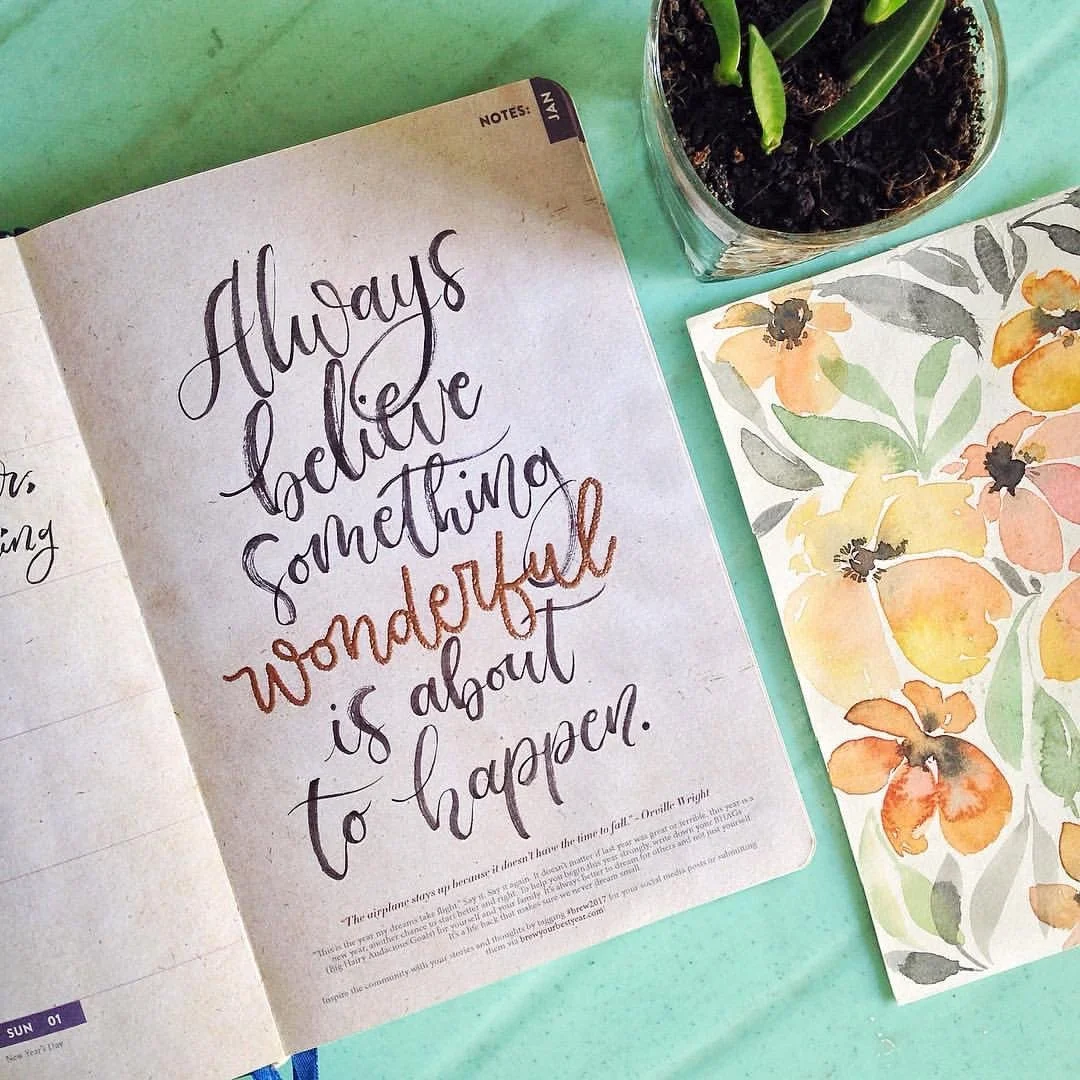 NOTES:
JAN
Always
believe
something
wonderful
is about
to happen.
"The airplane stays up because it doesn't have the time to fall." - Orville Wright
"This is the year my dreams take flight." Say it. Say it again. It doesn't matter if last year was great or terrible, this year is a
new year, another chance to start better and right. To help you begin this year strongly, write down your BHAGs
(Big Hairy Audacious Goals) for yourself and your family. It's always better to dream for others and not just yourself.
It's a life hack that makes sure we never dream small.
Inspire the community with your stories and thoughts by tagging #brew2017 for your social media posts or submitting
them via brewyourbestyear.com
r.
ing
SUN 01
New Year's Day